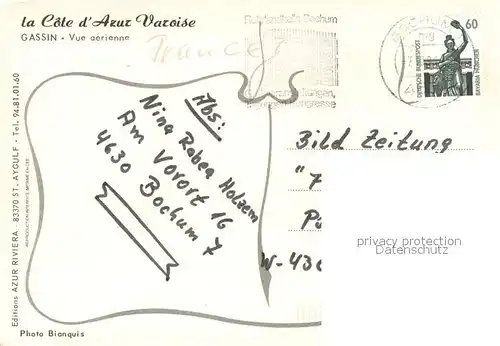 la Côte d'Azur Varoise
GASSIN - Vue aérienne
France
Ruhrlandhalle Bochum
60
DEUTSCHE BUNDESPOST
BAVARIA MÜNCHEN
Abs:
Nina Roben Holzem
Am Vorort 16
4630 Bochum 7
Bild Zeitung
"7
W-430
privacy protection
Datenschutz
Editions AZUR RIVIERA - 83370 ST. AYGULF - Tel. 94.81.01.60
Photo Bianquis